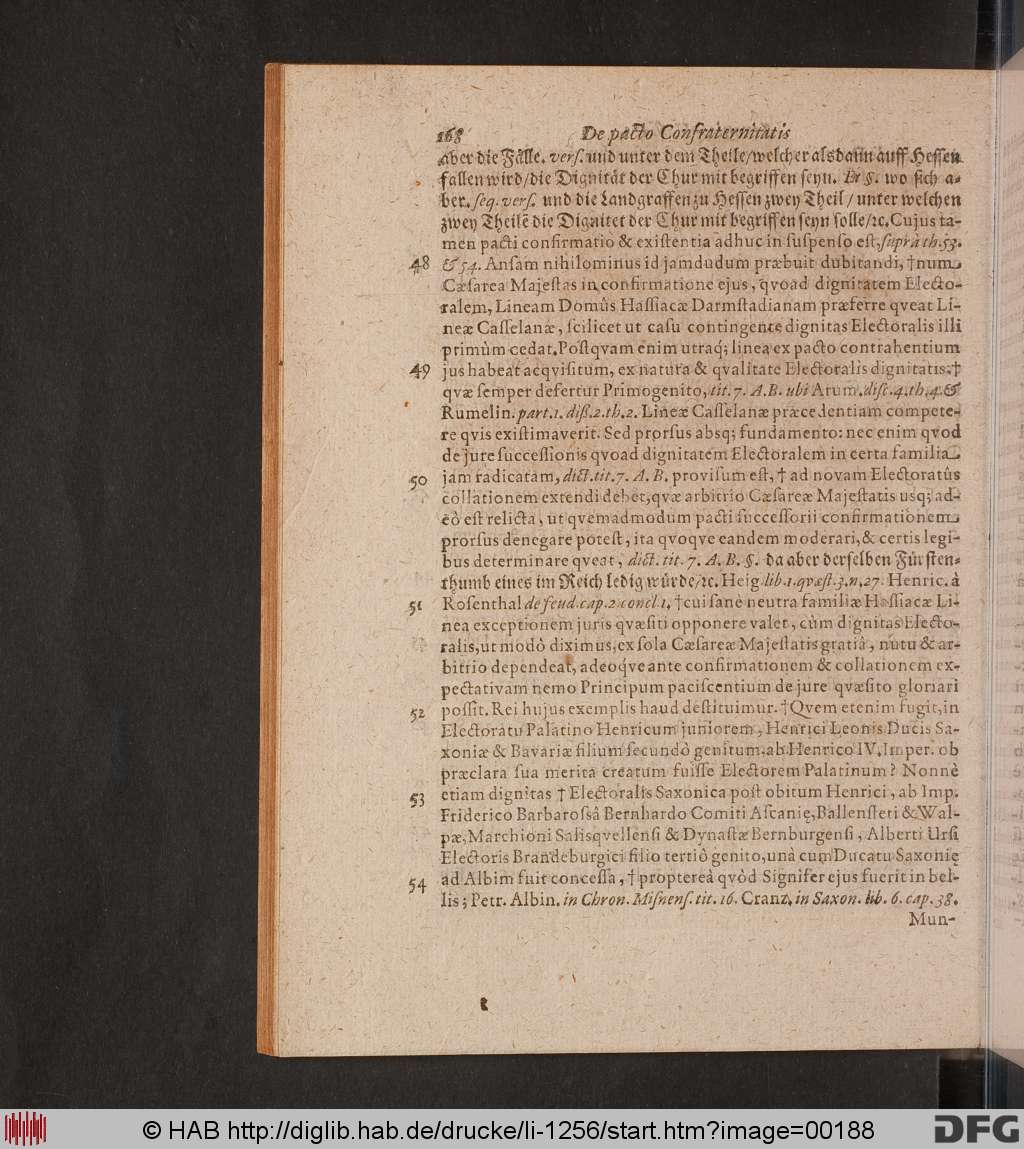 168 De pacto Confraternitatis
aber die Fälle. vers. und unter dem Theile/welcher alsdann auff Hessen
fallen wird/die Dignität der Chur mit begriffen seyn. Et §. wo sich a-
ber. seq. vers. und die Landgraffen zu Hessen zwey Theil/ unter welchen
zwey Theilẽ die Dignitet der Chur mit begriffen seyn solle/ꝛc. Cujus ta-
men pacti confirmatio & existentia adhuc in suspenso est, suprà th. 53.
48 & 54. Ansam nihilominus id jamdudum præbuit dubitandi, † num
Cæsarea Majestas in confirmatione ejus, qvoad dignitatem Electo-
ralem, Lineam Domûs Hassiacæ Darmstadianam præferre qveat Li-
neæ Casselanæ, scilicet ut casu contingente dignitas Electoralis illi
primùm cedat. Postqvam enim utraq; linea ex pacto contrahentium
49 jus habeat acqvisitum, ex natura & qvalitate Electoralis dignitatis. †
qvæ semper defertur Primogenito, tit. 7. A. B. ubi Arum. disc. 4. th. 4. &
Rumelin. part. 1. diss. 2. th. 2. Lineæ Casselanæ præcedentiam compete-
re qvis existimaverit. Sed prorsus absq; fundamento: nec enim qvod
de jure successionis qvoad dignitatem Electoralem in certa familia
50 jam radicatam, dict. tit. 7. A. B. provisum est, † ad novam Electoratûs
collationem extendi debet, qvæ arbitrio Cæsareæ Majestatis usq; ad-
eò est relicta, ut qvemadmodum pacti successorii confirmationem
prorsus denegare potest, ita qvoqve eandem moderari, & certis legi-
bus determinare qveat, dict. tit. 7. A. B. §. da aber derselben Fürsten-
thumb eines im Reich ledig würde/ꝛc. Heig. lib. 1. qvæst. 3. n. 27. Henric. à
51 Rosenthal de feud. cap. 2 concl. 1. † cui sanè neutra familiæ Hassiacæ Li-
nea exceptionem juris qvæsiti opponere valet, cùm dignitas Electo-
ralis, ut modò diximus, ex sola Cæsareæ Majestatis gratiâ, nutu & ar-
bitrio dependeat, adeoqve ante confirmationem & collationem ex-
pectativam nemo Principum paciscentium de jure qvæsito gloriari
52 possit. Rei hujus exemplis haud destituimur. † Qvem etenim fugit, in
Electoratu Palatino Henricum juniorem, Henrici Leonis Ducis Sa-
xoniæ & Bavariæ filium secundò genitum, ab Henrico IV. Imper. ob
præclara sua merita creatum fuisse Electorem Palatinum? Nonnè
53 etiam dignitas † Electoralis Saxonica post obitum Henrici, ab Imp.
Friderico Barbarossâ Bernhardo Comiti Ascanię, Ballensteti & Wal-
pæ, Marchioni Salisqvellensi & Dynastæ Bernburgensi, Alberti Ursi
Electoris Brandeburgici filio tertiò genito, unà cum Ducatu Saxonię
54 ad Albim fuit concessa, † proptereà qvòd Signifer ejus fuerit in bel-
lis; Petr. Albin. in Chron. Misnens. tit. 16. Cranz. in Saxon. lib. 6. cap. 38.
Mun-
© HAB http://diglib.hab.de/drucke/li-1256/start.htm?image=00188
DFG